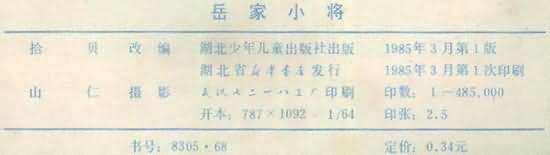 岳家小将
拾贝改编 湖北少年儿童出版社出版 1985年3月第1版
湖北省新华书店发行 1985年3月第1次印刷
山仁摄影 武汉七二一八工厂印刷 印数：1—485,000
开本：787×1092 · 1/64 印张：2.5
书号：8305·68 定价：0.34元